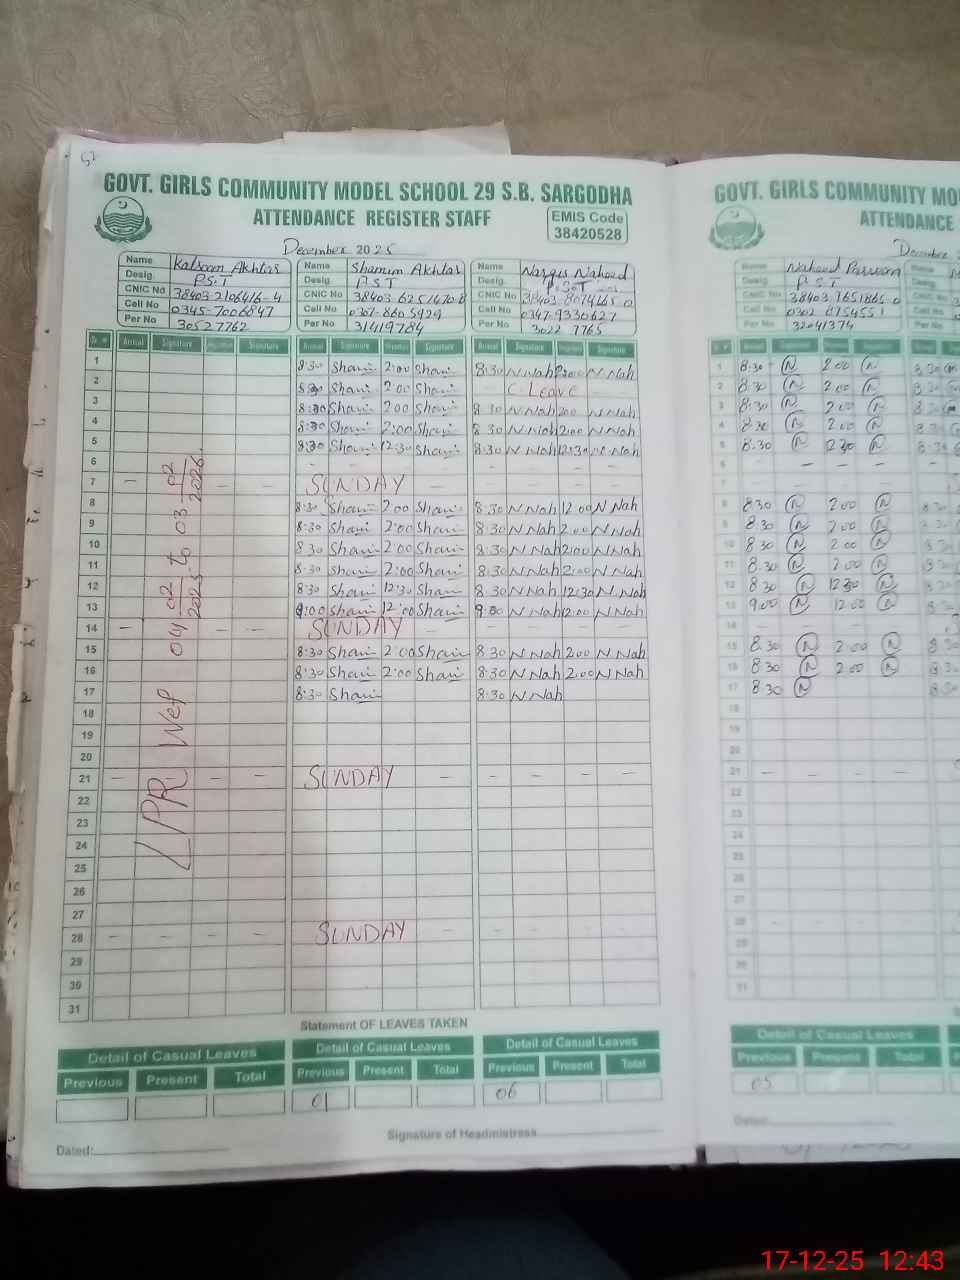 GOVT. GIRLS COMMUNITY MODEL SCHOOL 29 S.B. SARGODHA
ATTENDANCE REGISTER STAFF
EMIS Code
38420528
December 2025
Name Kalsoom Akhtar Name Shamim Akhtar Name Nargis Naheed
Desig. P.S.T Desig. P S T Desig. P.S.T
CNIC No 38403 2106416-4 CNIC No 38403 6251470 8 CNIC No 38403-8074165 0
Cell No 0345-7006847 Cell No 0347-860 5929 Cell No 0347-9330627
Per No 30527762 Per No 31419784 Per No 3022 7765
Arrival Signature Signature Arrival Signature Signature Arrival Signature Signature
1 8:30 Sham 2:00 Sham 8:30 N Nah 2:00 N Nah
2 8:30 Sham 2:00 Sham - C. Leave - -
3 8:30 Sham 2:00 Sham 8:30 N Nah 2:00 N Nah
4 8:30 Sham 2:00 Sham 8:30 N Nah 2:00 N Nah
5 8:30 Sham 12:30 Sham 8:30 N Nah 12:30 N Nah
6 - - - - - - - -
7 - - - SUNDAY - - - - -
8 8:30 Sham 2:00 Sham 8:30 N Nah 12:00 N Nah
9 8:30 Sham 2:00 Sham 8:30 N Nah 2:00 N Nah
10 8:30 Sham 2:00 Sham 8:30 N Nah 2:00 N Nah
11 8:30 Sham 2:00 Sham 8:30 N Nah 2:00 N Nah
12 8:30 Sham 12:30 Sham 8:30 N Nah 12:30 N Nah
13 9:00 Sham 12:00 Sham 9:00 N Nah 12:00 N Nah
14 - - - SUNDAY - - - - -
15 8:30 Sham 2:00 Sham 8:30 N Nah 2:00 N Nah
16 8:30 Sham 2:00 Sham 8:30 N Nah 2:00 N Nah
17 8:30 Sham 8:30 N Nah
18
19
20
21 - - - - SUNDAY - - - - -
22
23
24
25
26
27
28 - - - - SUNDAY - - - - -
29
30
31
LPR Wef 04 02 2025 to 03 02 2026.
Statement OF LEAVES TAKEN
Detail of Casual Leaves Detail of Casual Leaves Detail of Casual Leaves
Previous Present Total Previous Present Total Previous Present Total
01 06
Dated: Signature of Headmistress
GOVT. GIRLS COMMUNITY MO
ATTENDANCE
December 2
Name Naheed Parveen
Desig. P S T
CNIC No 38403 7651865 0
Cell No 0302 0754551
Per No 32041374
1 8:30 N 2:00 N 8:30
2 8:30 N 2:00 N 8:30
3 8:30 N 2:00 N 8:30
4 8:30 N 2:00 N 8:30
5 8:30 N 12:30 N 8:30
6 - - - -
7 - - - -
8 8:30 N 2:00 N
9 8:30 N 2:00 N
10 8:30 N 2:00 N
11 8:30 N 2:00 N
12 8:30 N 12:30 N
13 9:00 N 12:00 N
14 - - - -
15 8:30 N 2:00 N 8:30
16 8:30 N 2:00 N 8:30
17 8:30 N
18
19
20
21 - - - -
22
23
24
25
26
27
28 - - - -
29
30
31
Detail of Casual Leaves
Previous Present Total
05
Dated:
17-12-25 12:43